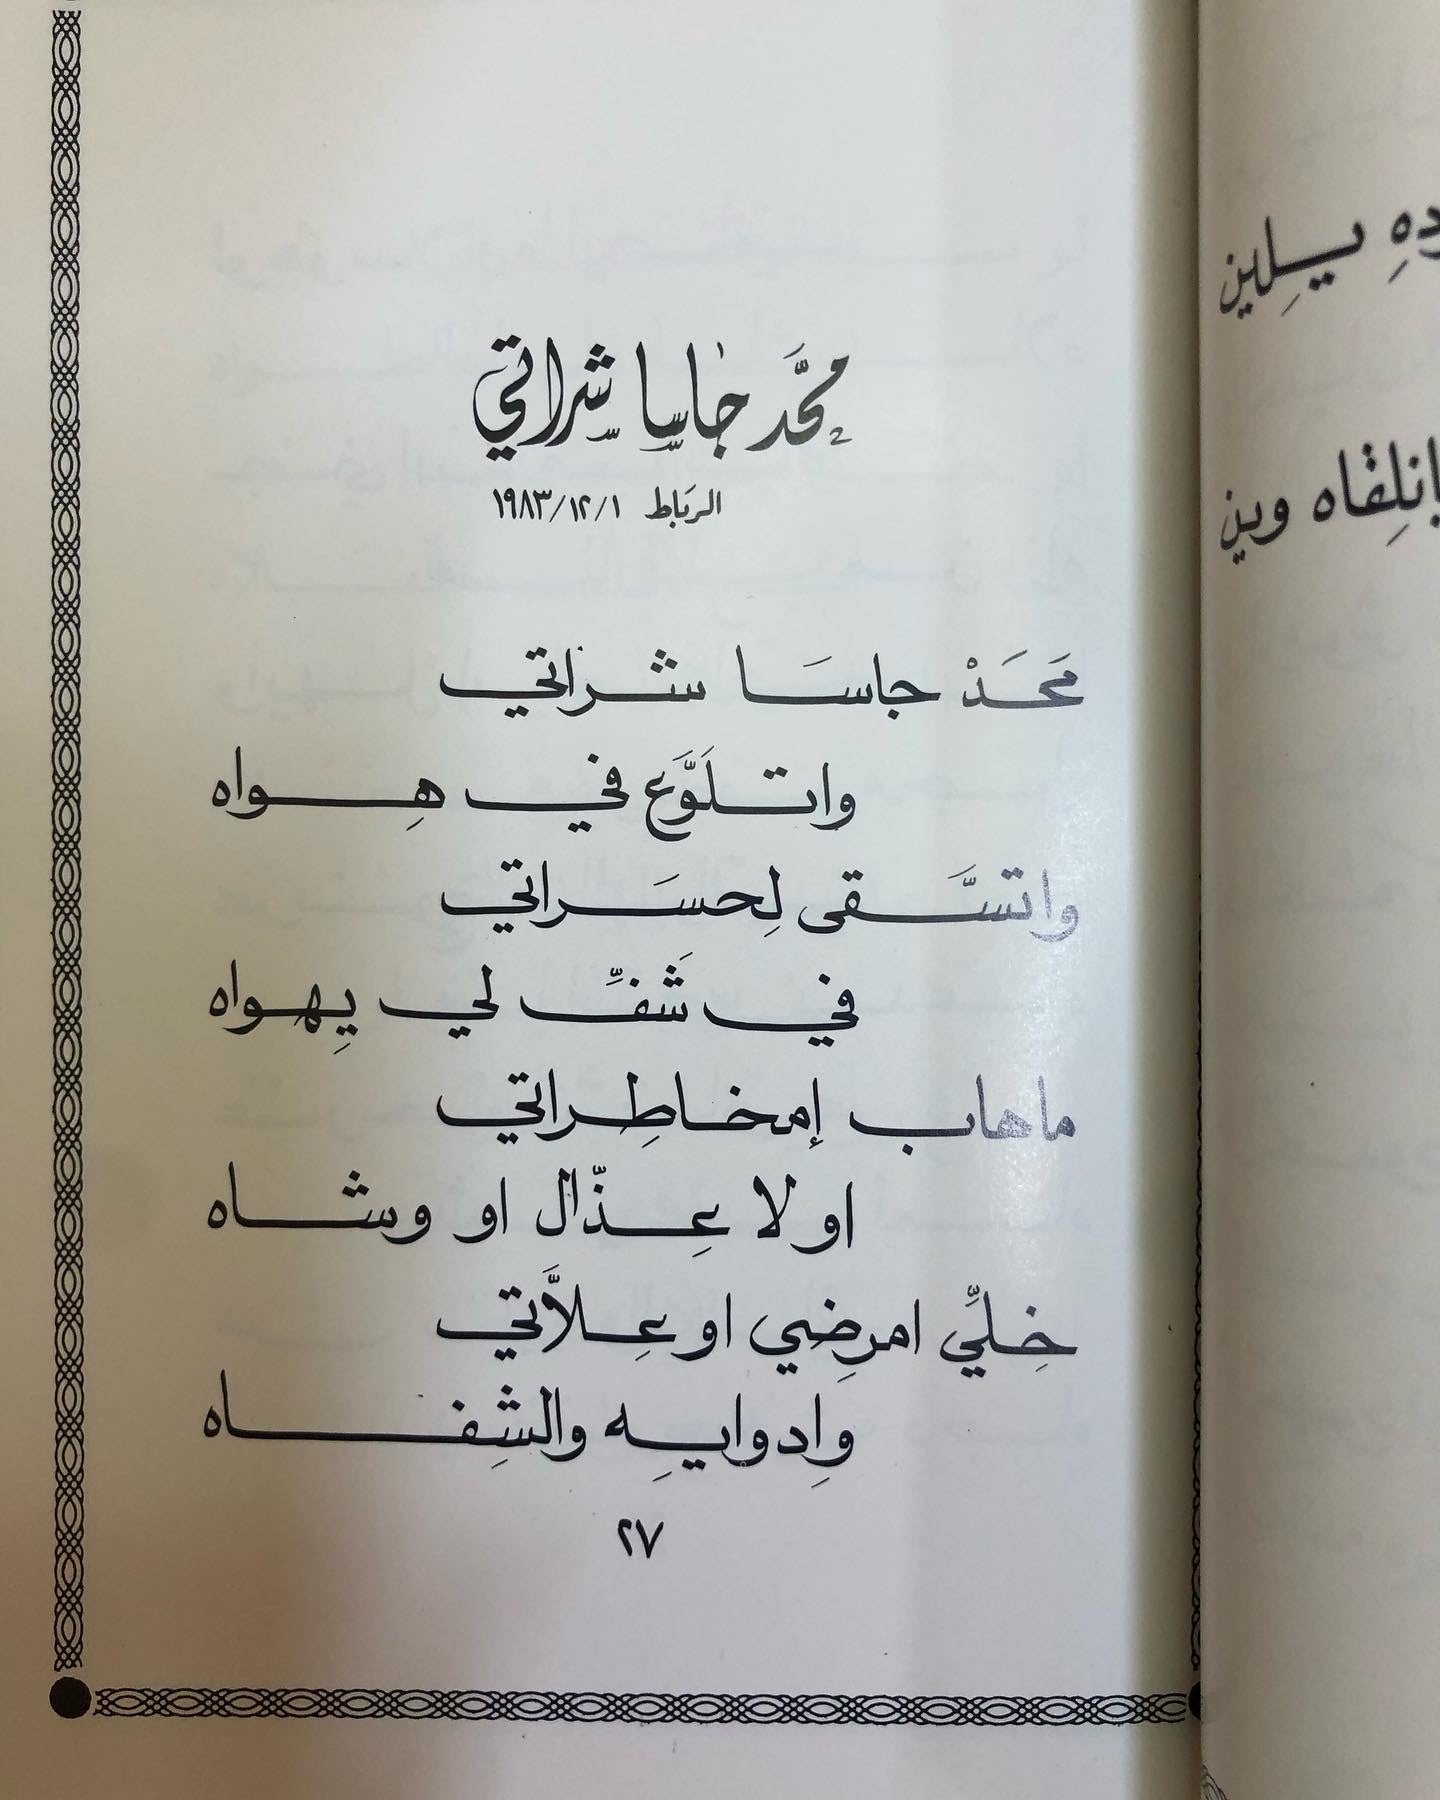 محَّد جاسا شراتي
الرباط ١٩٨٣/١٢/١
مَحَدْ جاسَا شراتي
واتلَوَّع في هِواه
واتسَّقى لِحسَراتي
في شَفِّ لي يِهواه
ماهاب إمخاطِراتي
او لا عِذّال او وشاه
خِلِّي امرِضِي او عِلاَّتي
وِادوايِه والشِفاه
٢٧
يلِين
وين